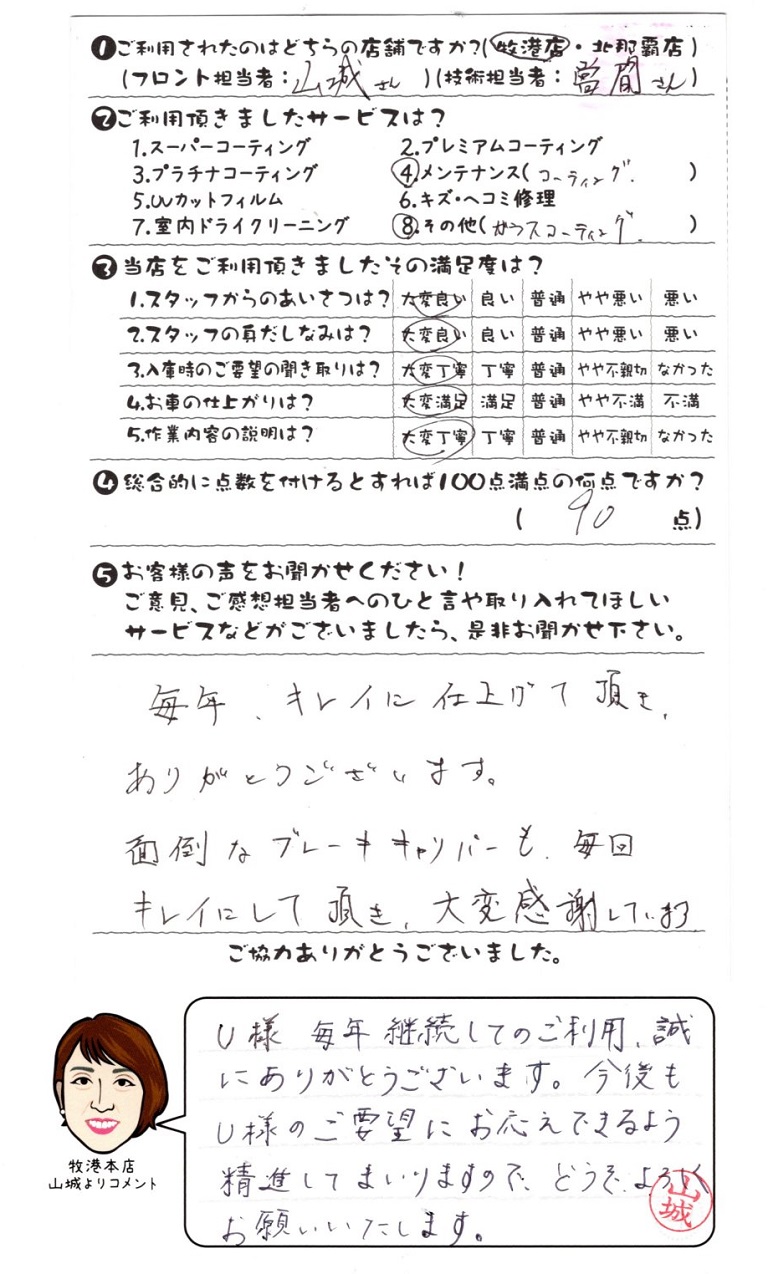 ❶ご利用されたのはどちらの店舗ですか?(牧港店・北那覇店)
(フロント担当者:山城さん )(技術担当者:當間さん)
❷ご利用頂きましたサービスは?
1.スーパーコーティング 2.プレミアムコーティング
3.プラチナコーティング 4.メンテナンス(コーティング. )
5.UVカットフィルム 6.キズ・ヘコミ修理
7.室内ドライクリーニング 8.その他(ガラスコーティング. )
❸当店をご利用頂きましたその満足度は?
1.スタッフからのあいさつは? 大変良い 良い 普通 やや悪い 悪い
2.スタッフの身だしなみは? 大変良い 良い 普通 やや悪い 悪い
3.入庫時のご要望の聞き取りは? 大変丁寧 丁寧 普通 やや不親切 なかった
4.お車の仕上がりは? 大変満足 満足 普通 やや不満 不満
5.作業内容の説明は? 大変丁寧 丁寧 普通 やや不親切 なかった
❹総合的に点数を付けるとすれば100点満点の何点ですか?
( 90 点)
❺お客様の声をお聞かせください!
ご意見、ご感想担当者へのひと言や取り入れてほしい
サービスなどがございましたら、是非お聞かせ下さい。
毎年、キレイに仕上げて頂き、
ありがとうございます。
面倒なブレーキキャリパーも、毎回
キレイにして頂き、大変感謝しています
ご協力ありがとうございました。
U様 毎年継続してのご利用、誠
にありがとうございます。今後も
U様のご要望にお応えできるよう
精進してまいりますので、どうぞ、よろしく
お願いいたします。
山城
牧港本店
山城よりコメント